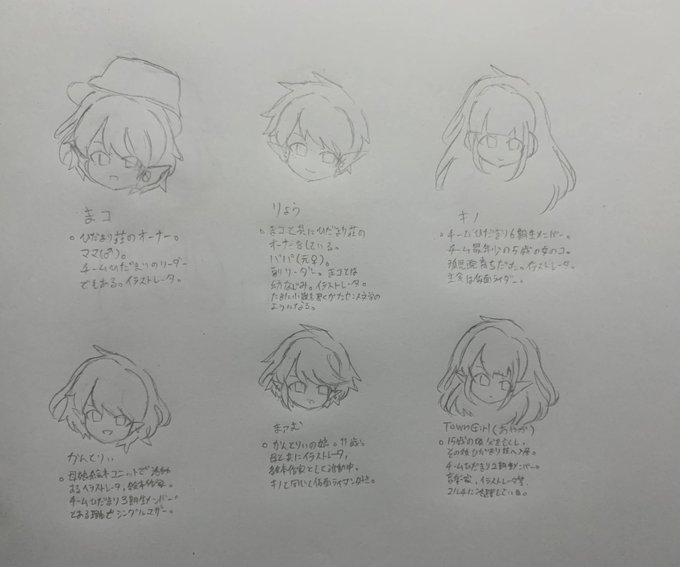 まコ
○ ひだまり荘のオーナー。
ママ(♂)。
チームひだまりのリーダー
でもある。イラストレータ。
りょう
○ まコと共にひだまり荘の
オーナーをしている。
パパ(元♀)。
副リーダー。まコとは
幼なじみ。イラストレータ。
たまに小説を書くがセンス
のようになる。
キノ
○ チームひだまり6期生メンバー。
チーム最年少の5歳の女のコ。
育ちだった。イラストレータ。
主食は仮面ライダー。
かんとりぃ
○ 母娘絵本ユニットで活動
するイラストレータ、絵本作家。
チームひだまり3期生メンバー。
とある理由でシングルマザー。
まァむ
○ かんとりぃの娘。11歳。
母と共にイラストレータ、
絵本作家として活動中。
キノと同じく仮面ライダー好き。
TownGirl(あやか)
○ 15歳の頃父を亡くし、
その後ひだまり荘へ入居。
チームひだまり2期生メンバー。
音楽家、イラストレータ等、
マルチに活躍している。